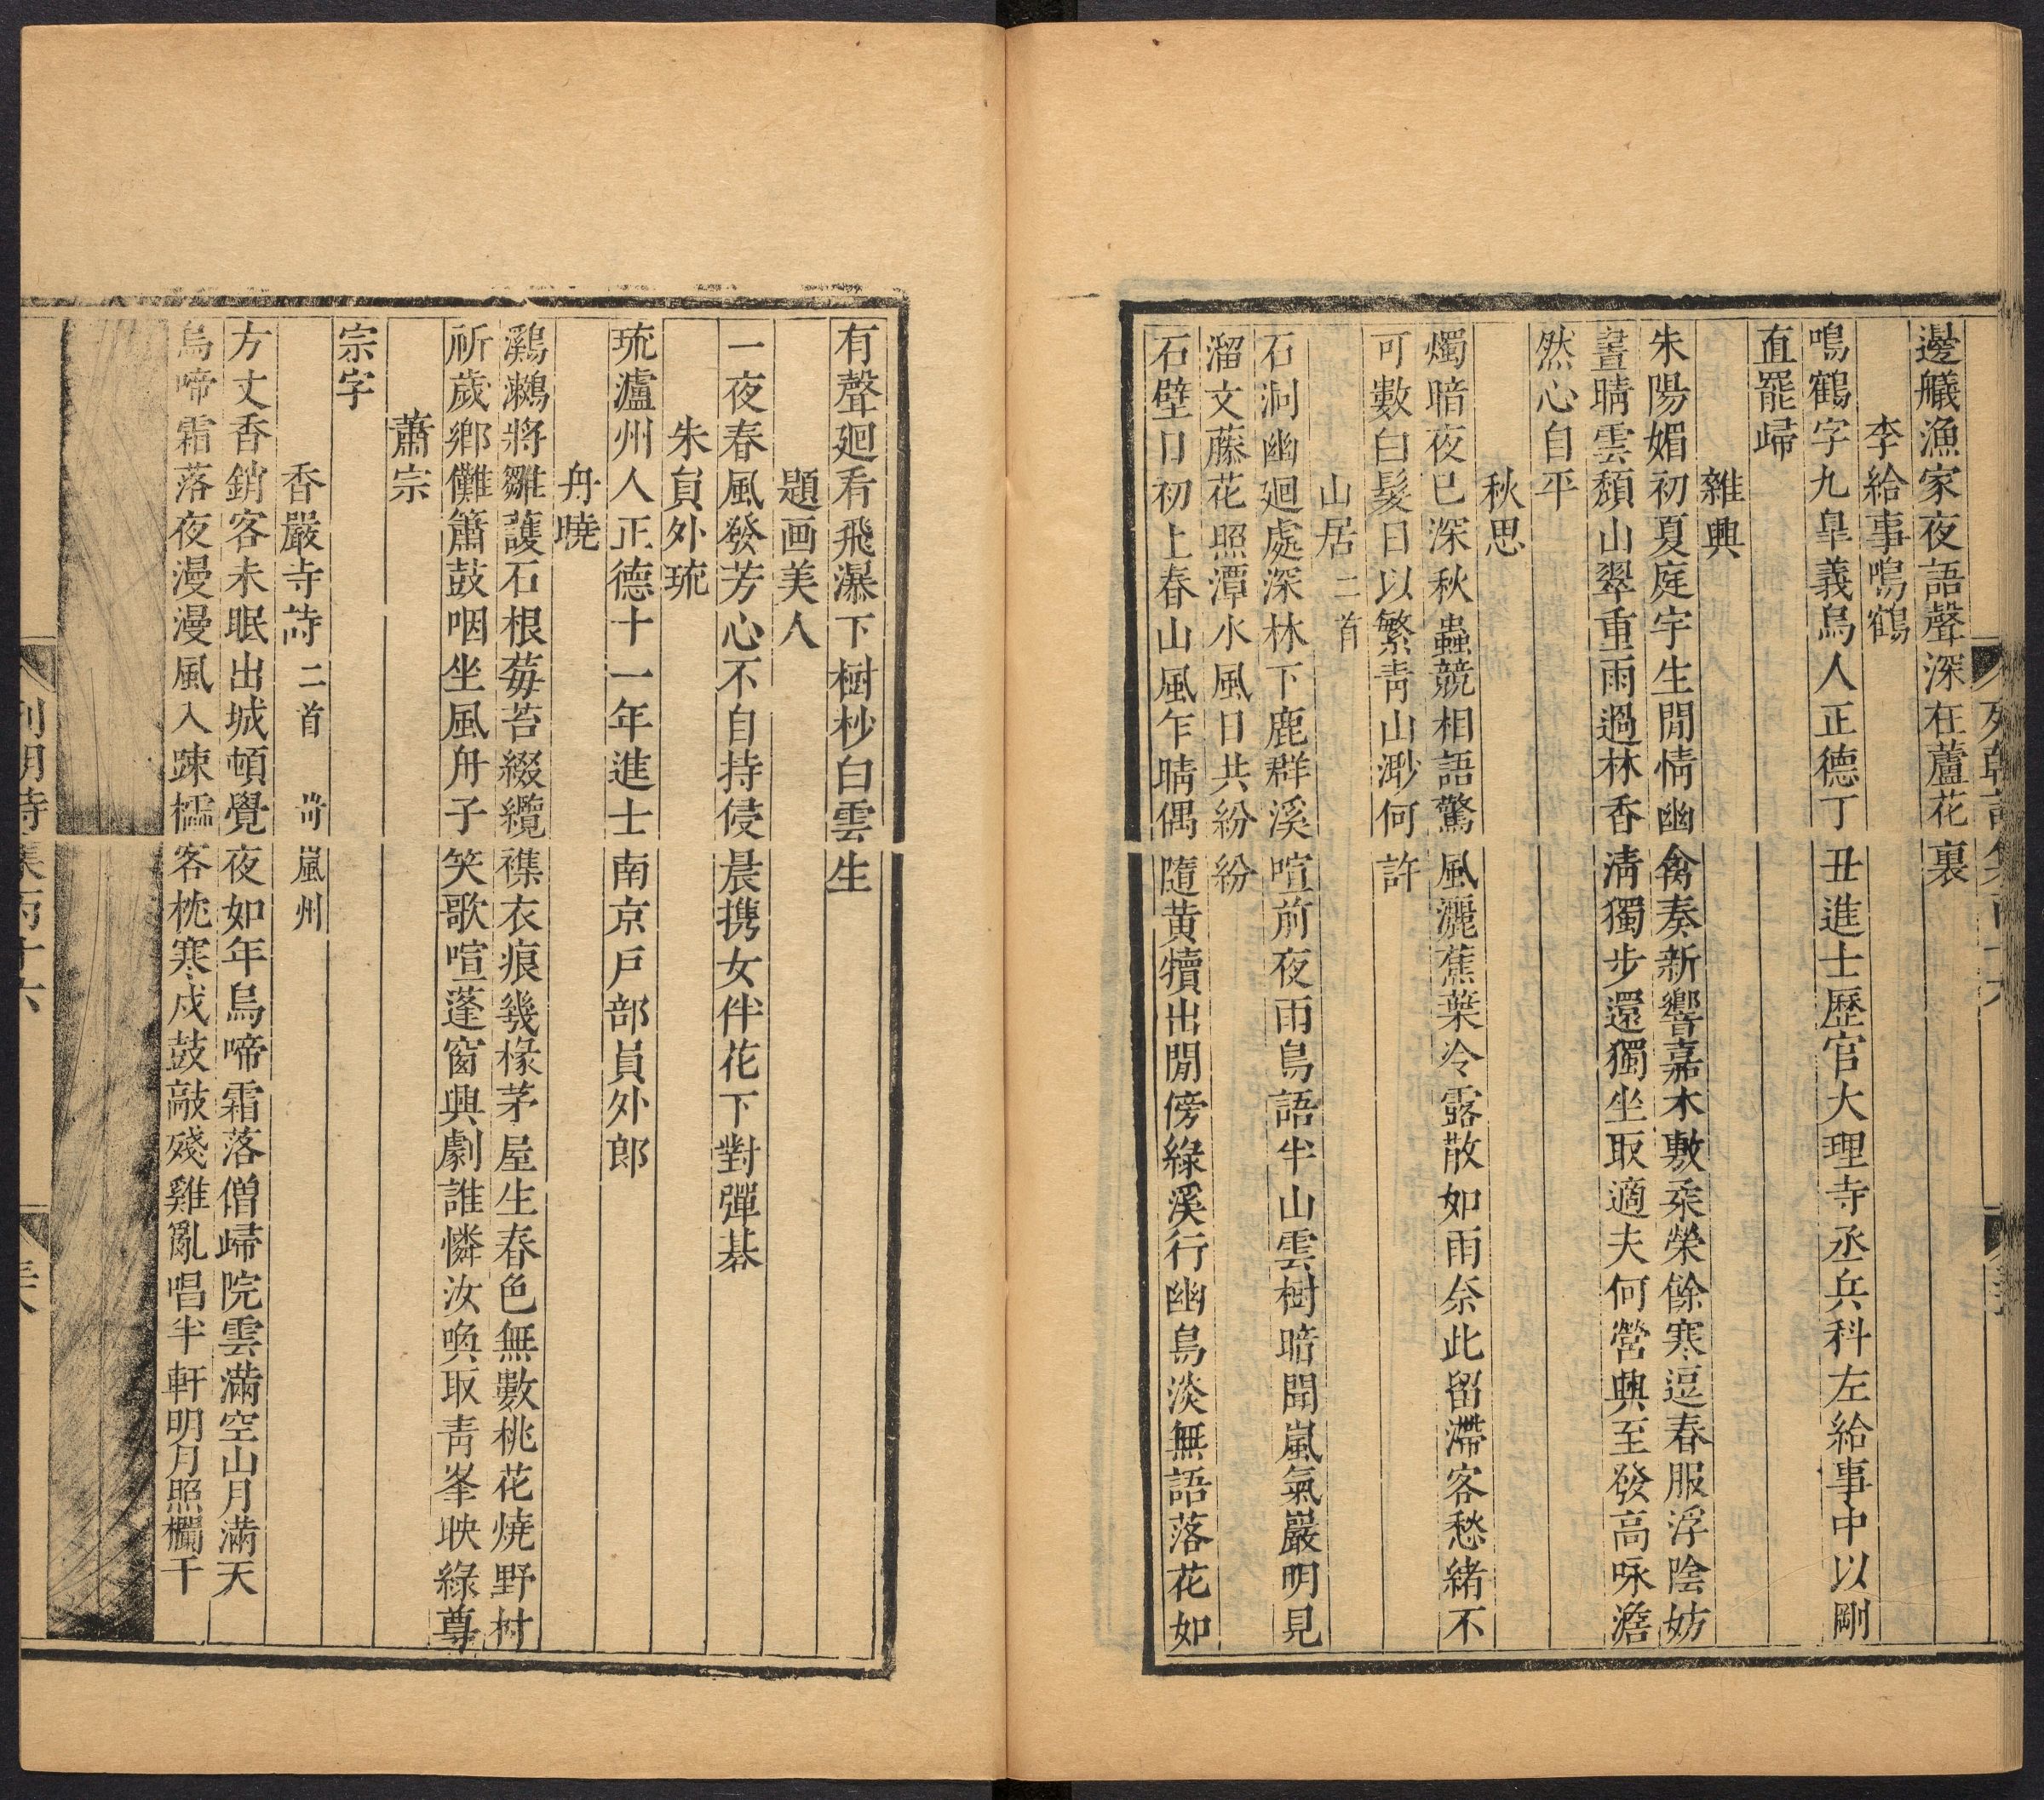 邊艤漁家夜語聲深在蘆花裏
李給事鳴鶴
鳴鶴字九臯義烏人正德丁丑進士歷官大理寺丞兵科左給事中以剛
直罷歸
雜興
朱陽媚初夏庭宇生閒情幽禽奏新響嘉木敷柔榮餘寒逗春服浮陰妨
晝晴雲頽山翠重雨過林香淸獨步還獨坐取適夫何營興至發高咏澹
然心自平
秋思
燭暗夜已深秋蟲競相語驚風灑蕉葉冷露散如雨奈此留滯客愁緖不
可數白髮日以繁靑山渺何許
山居二首
石洞幽廻處深林下鹿群溪喧前夜雨鳥語半山雲樹暗聞嵐氣巖明見
溜文藤花照潭水風日共紛紛
石壁日初上春山風乍晴偶隨黃犢出閒傍綠溪行幽鳥淡無語落花如
有聲廻看飛瀑下樹杪白雲生
題画美人
一夜春風發芳心不自持侵晨携女伴花下對彈棊
朱員外琉
琉瀘州人正德十一年進士南京戶部員外郎
舟曉
鸂鶒將雛護石根莓苔綴纜襍衣痕幾椽茅屋生春色無數桃花燒野村
祈歲鄉儺簫鼓咽坐風舟子笑歌喧蓬窗興劇誰憐汝喚取靑峯映綠尊
蕭宗
宗字
香嚴寺詩二首 岢嵐州
方丈香銷客未眠出城頓覺夜如年烏啼霜落僧歸院雲滿空山月滿天
烏啼霜落夜漫漫風入踈櫺客枕寒戍鼓敲殘雞亂唱半軒明月照欄干